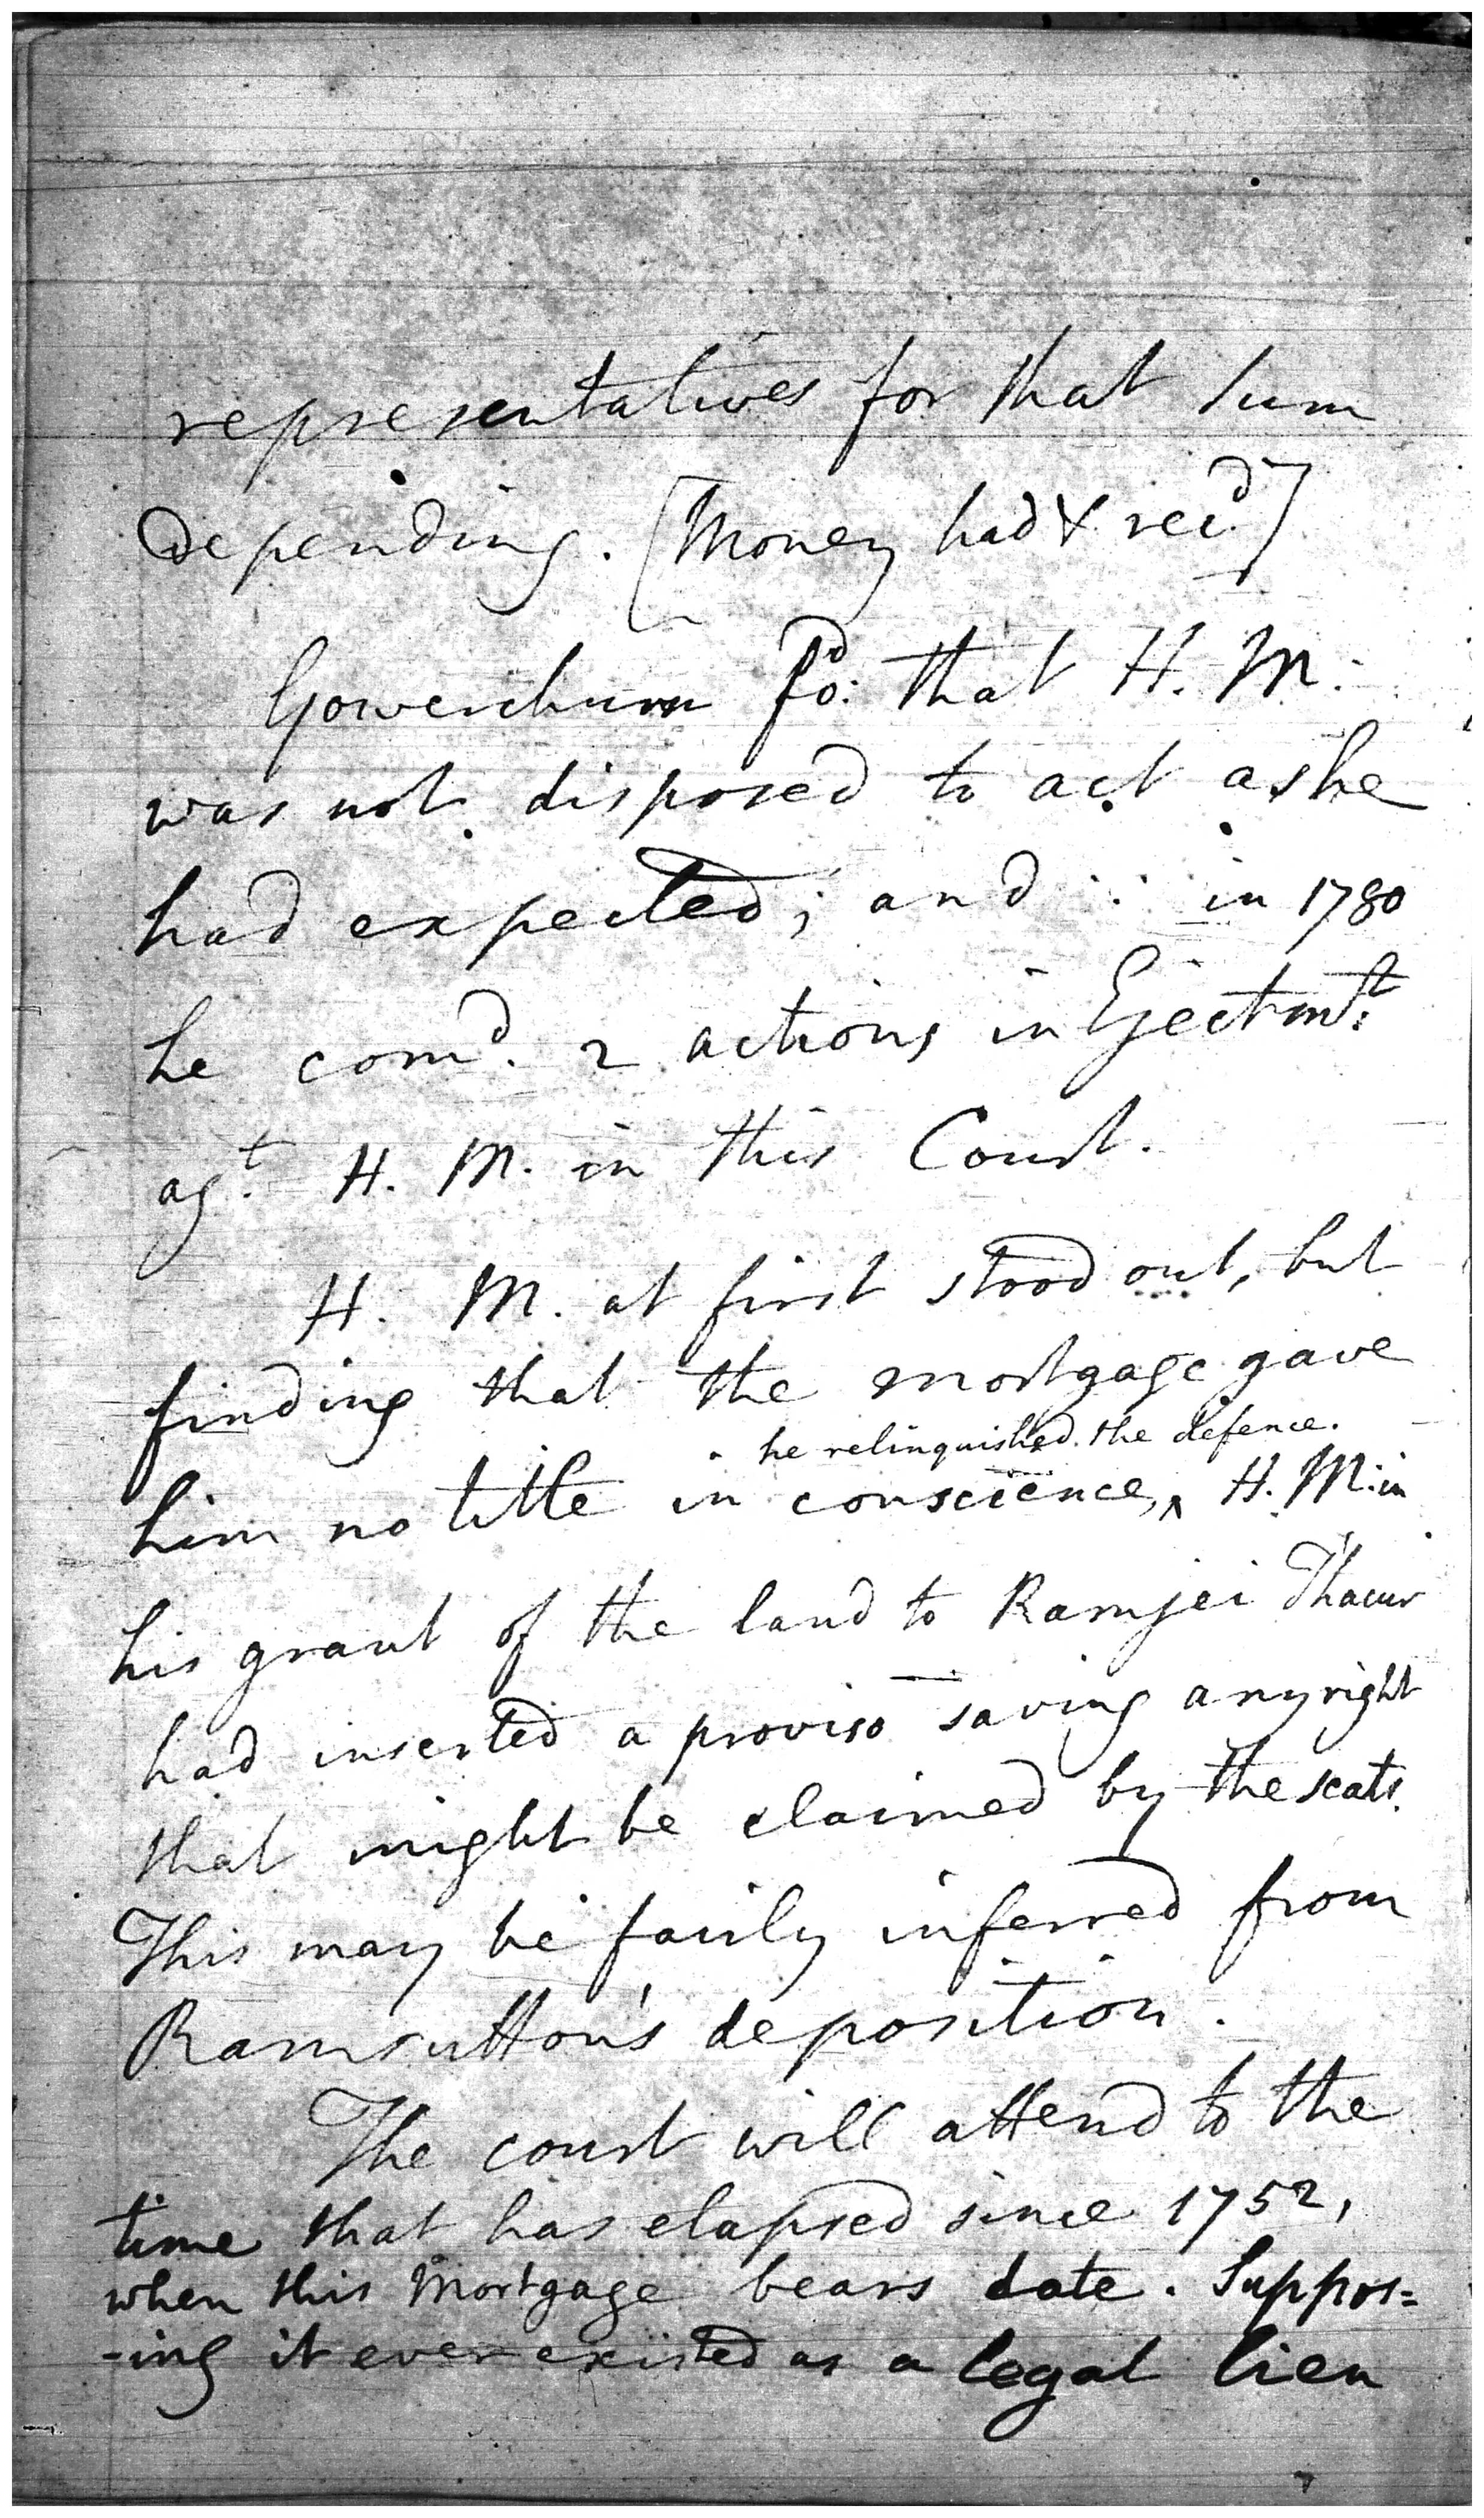 representatives for that sum
depending. [Money had & rec.d]
Gowerchurn fo:d that H. M.
was not disposed to act as he
had expected; and in 1780
he com.d 2 actions in Ejectm:t
ag.t H. M. in this Court.
H. M. at first stood out, but
finding that the mortgage gave
he relinquished the defence.
him no title in conscience, ^ H. M: in
his grant of the land to Ramjei Thacur
had inserted a proviso saving any right
that might be claimed by the seats.
This may be fairly inferred from
Ramsutton's deposition.
The court will attend to the
time that has elapsed since 1752,
when this Mortgage bears date. Suppos=
-ing it ever existed as a legal lien